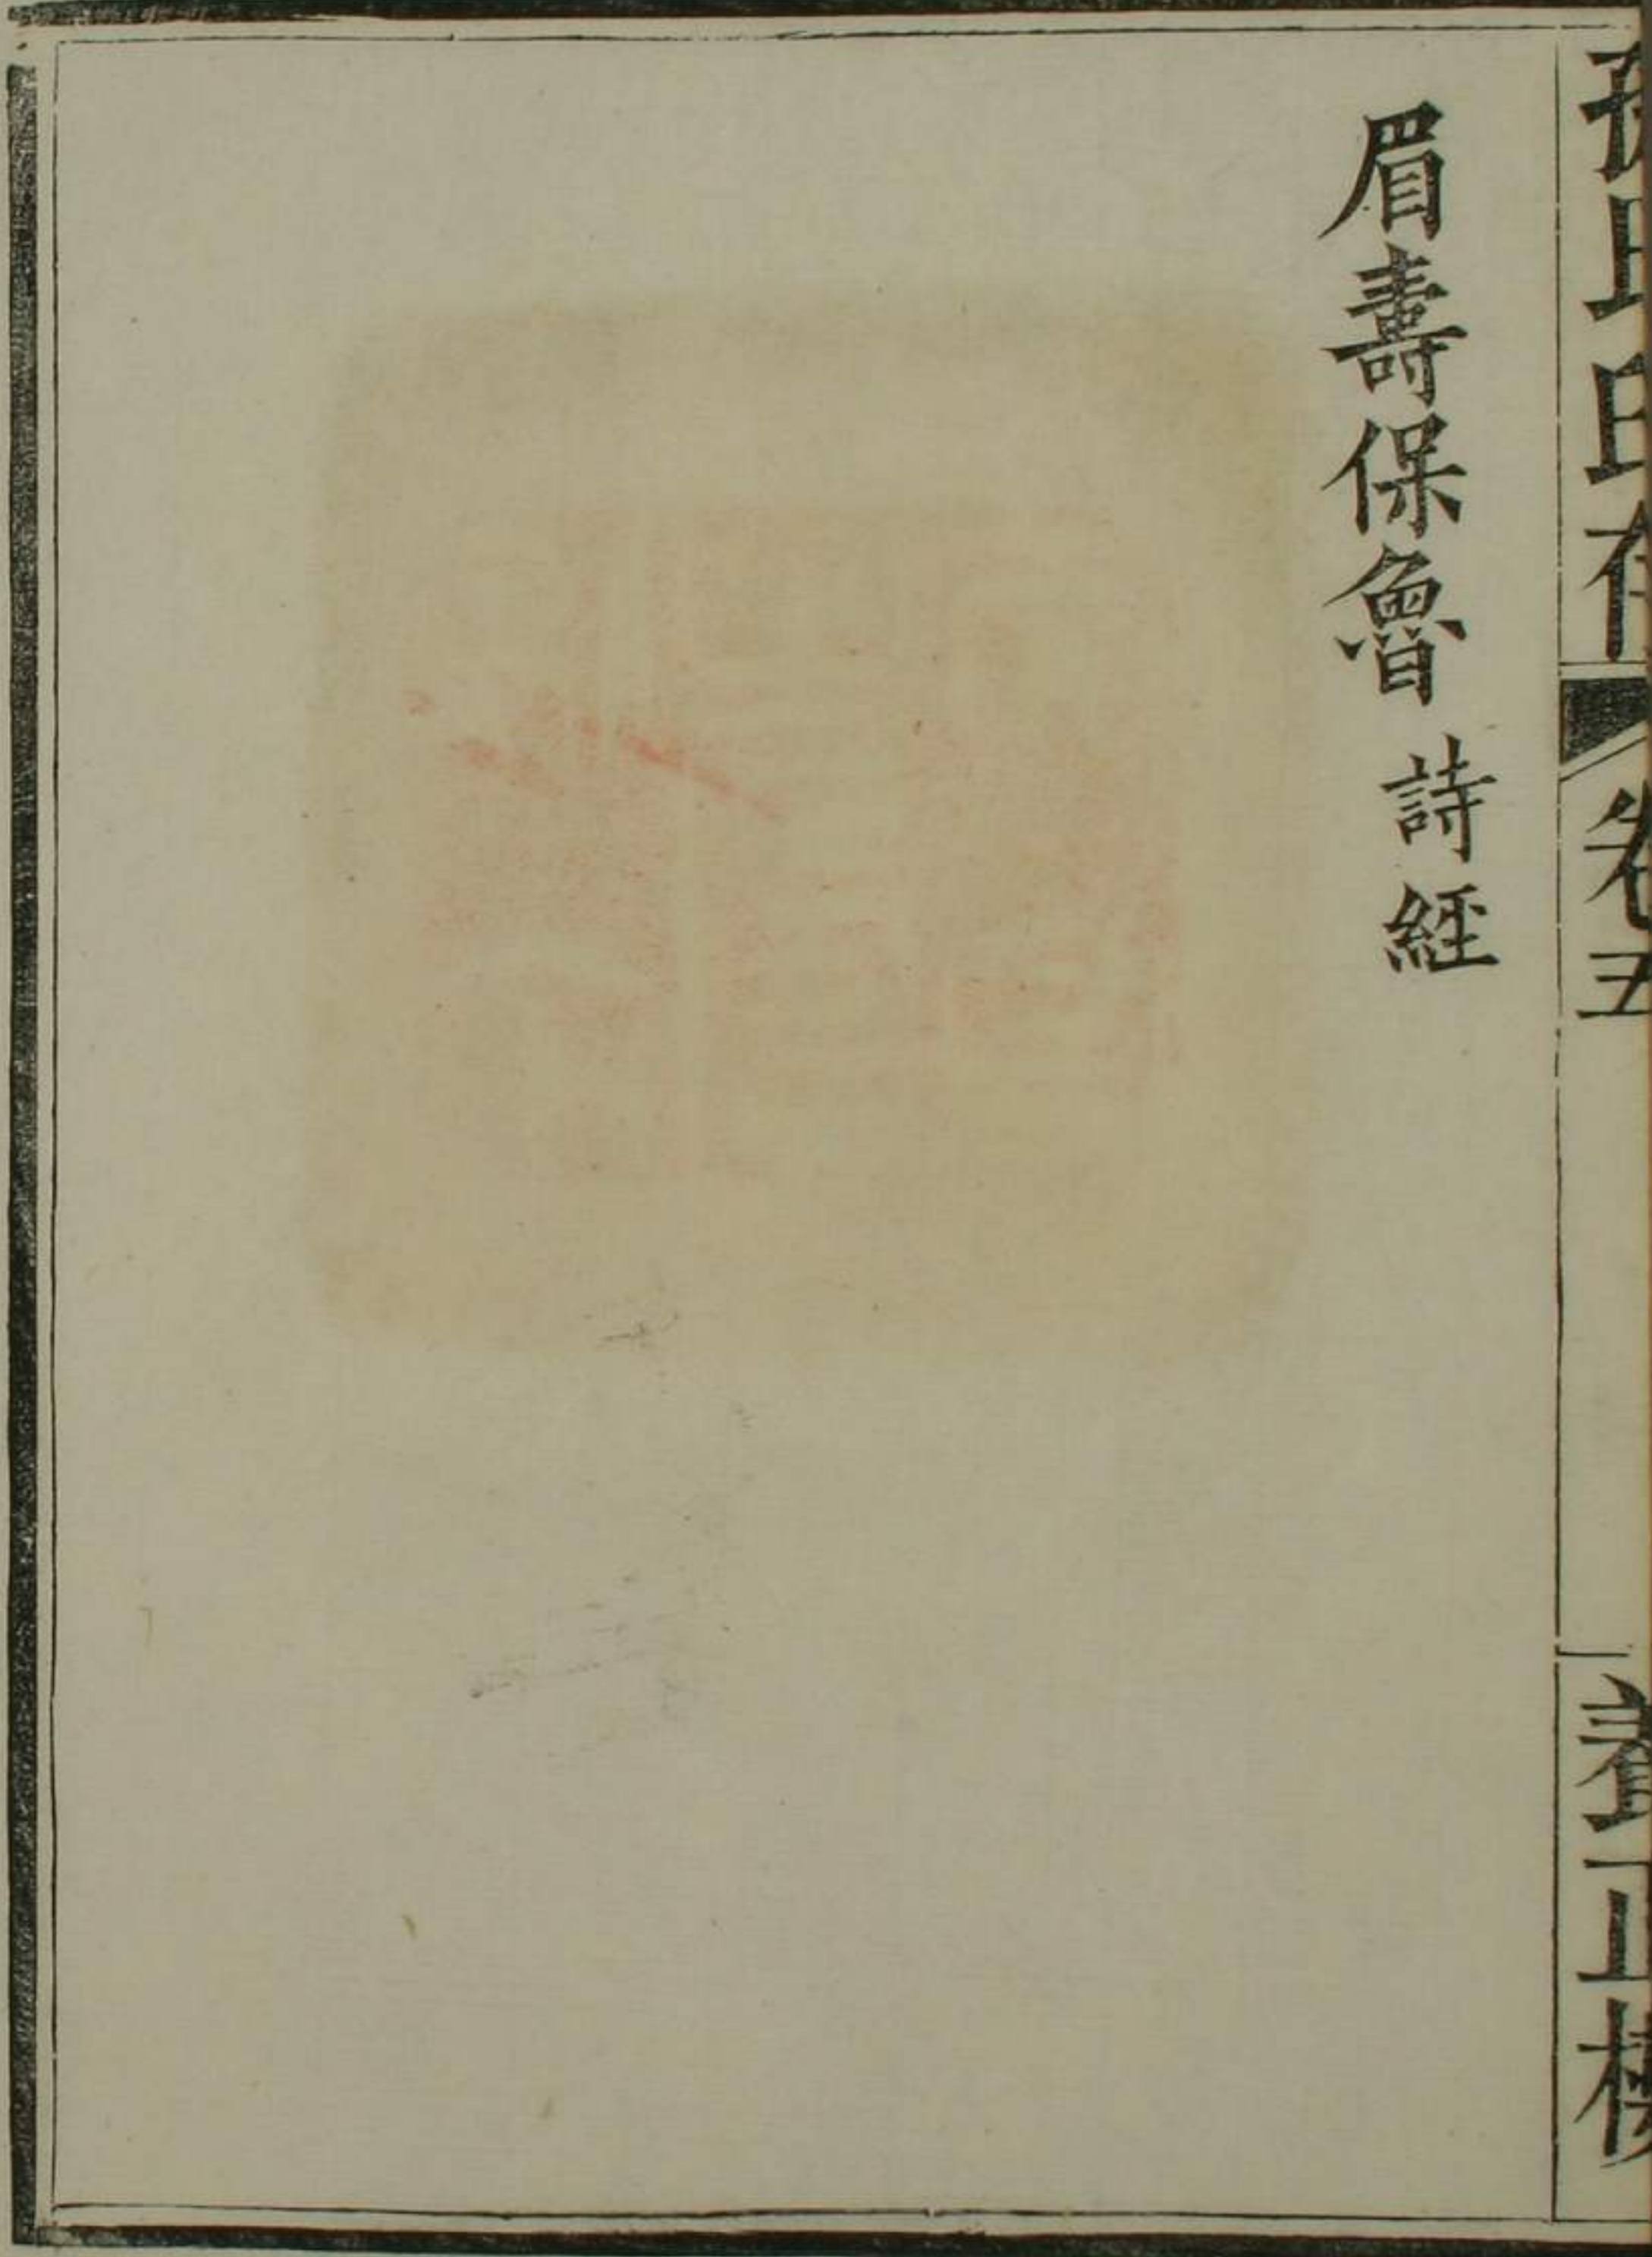 孫氏印存
卷五
養正樓
眉壽保魯 詩經